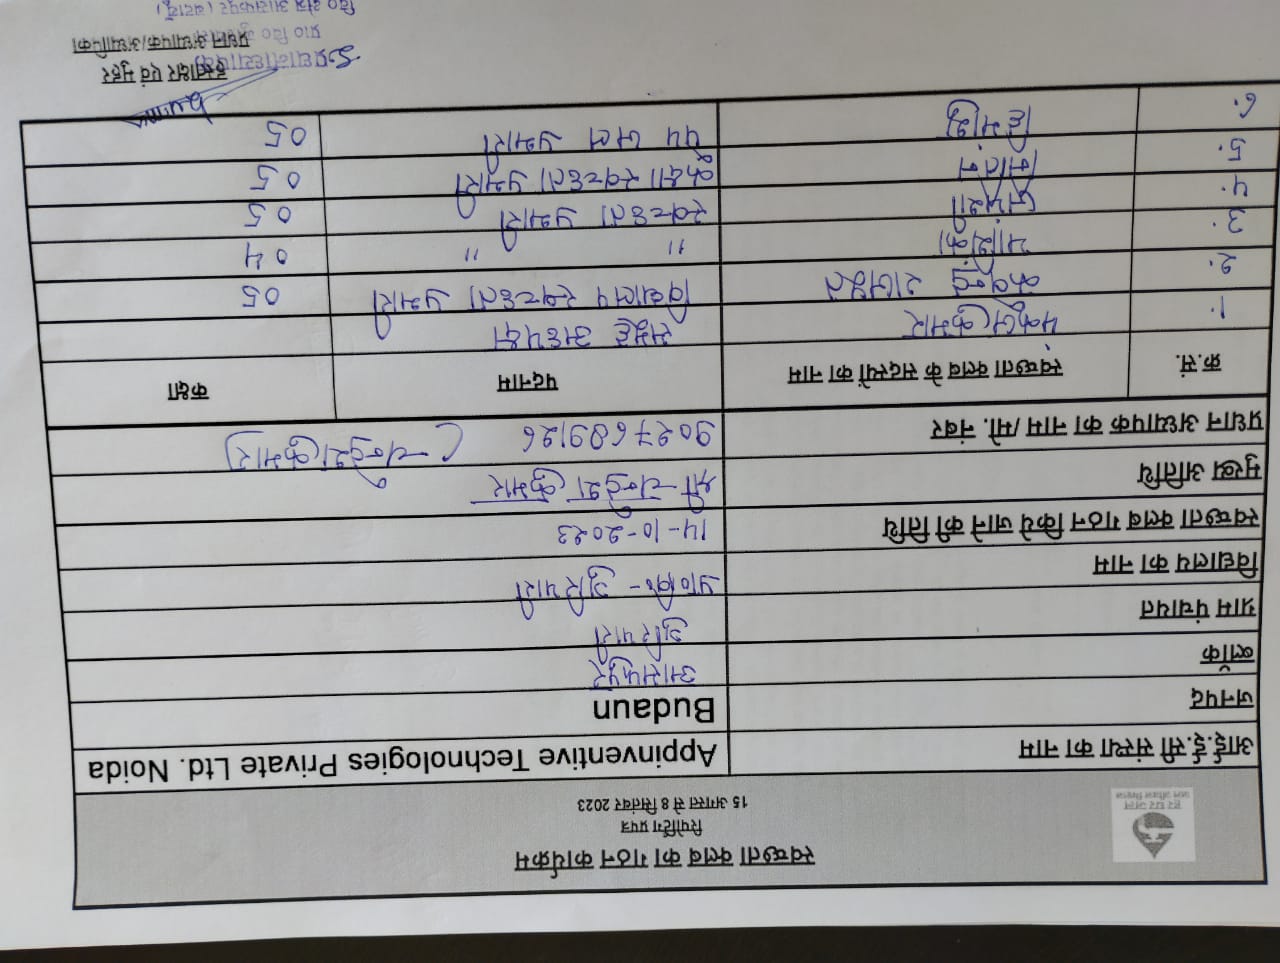 हर घर जल
जल जीवन मिशन
स्वच्छता क्लब का गठन कार्यक्रम
रिपोर्टिंग प्रपत्र
15 अगस्त से 8 सितंबर 2023
आई.ई.सी संस्था का नाम Appinventive Technologies Private Ltd. Noida
जनपद Budaun
ब्लॉक आसफपुर
ग्राम पंचायत
विद्यालय का नाम प्रा० वि० -
स्वच्छता क्लब गठन किये जाने की तिथि 14-10-2023
मुख्य अतिथि श्री चन्द्रेश कुमार
प्रधान अध्यापक का नाम /मो. नंबर 9027689126 (चन्द्रेश कुमार)
क्र.सं. स्वच्छता क्लब के सदस्यों का नाम पदनाम कक्षा
1. पंकज कुमार समूह अध्यक्ष
2. विद्यालय स्वच्छता प्रभारी 05
3. " " 04
4. स्वच्छता प्रभारी 05
5. कक्षा स्वच्छता प्रभारी 05
6. पेय जल प्रभारी 05
हस्ताक्षर एवं मुहर
प्रधान अध्यापक/अध्यापिका